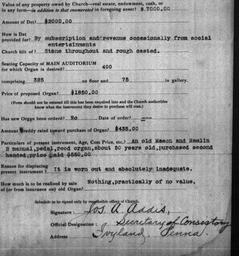 Value of any property owned by Church—real estate, endowment, cash, or
in any form—in addition to that enumerated in foregoing asset? $ 7000.00
Amount of Debt? $3000.00
How is Debt
provided for? By subscription and revenue occasionally from social
entertainments
Church built of? Stone throughout and rough casted.
Seating Capacity of MAIN AUDITORIUM
for which Organ is desired? 400
comprising 325 on floor and 75 in gallery.
Price of proposed Organ? $1850.00
(Form should not be returned till this has been inquired into and the Church authorities
know what the instrument they desire to purchase will cost.)
Has new Organ been ordered? No Date of order?
Amount already raised toward purchase of Organ? $435.00
Particulars of present instrument, Age, Cost Price, etc.? An old Mason and Hamlin
2 manual, pedal, reed organ, about 30 years old, purchased second
handed, price paid $550.00
Reason for displacing
present instrument? It is worn out and absolutely inadequate.
How much is to be realized by sale
of (or from insurance on) old Organ? Nothing, practically of no value,
Schedule to be signed only by responsible officer of Church.
Signature: Jos. A. Addis
Official Designation: Secretary of Consistory
Address Ivyland, Penna.